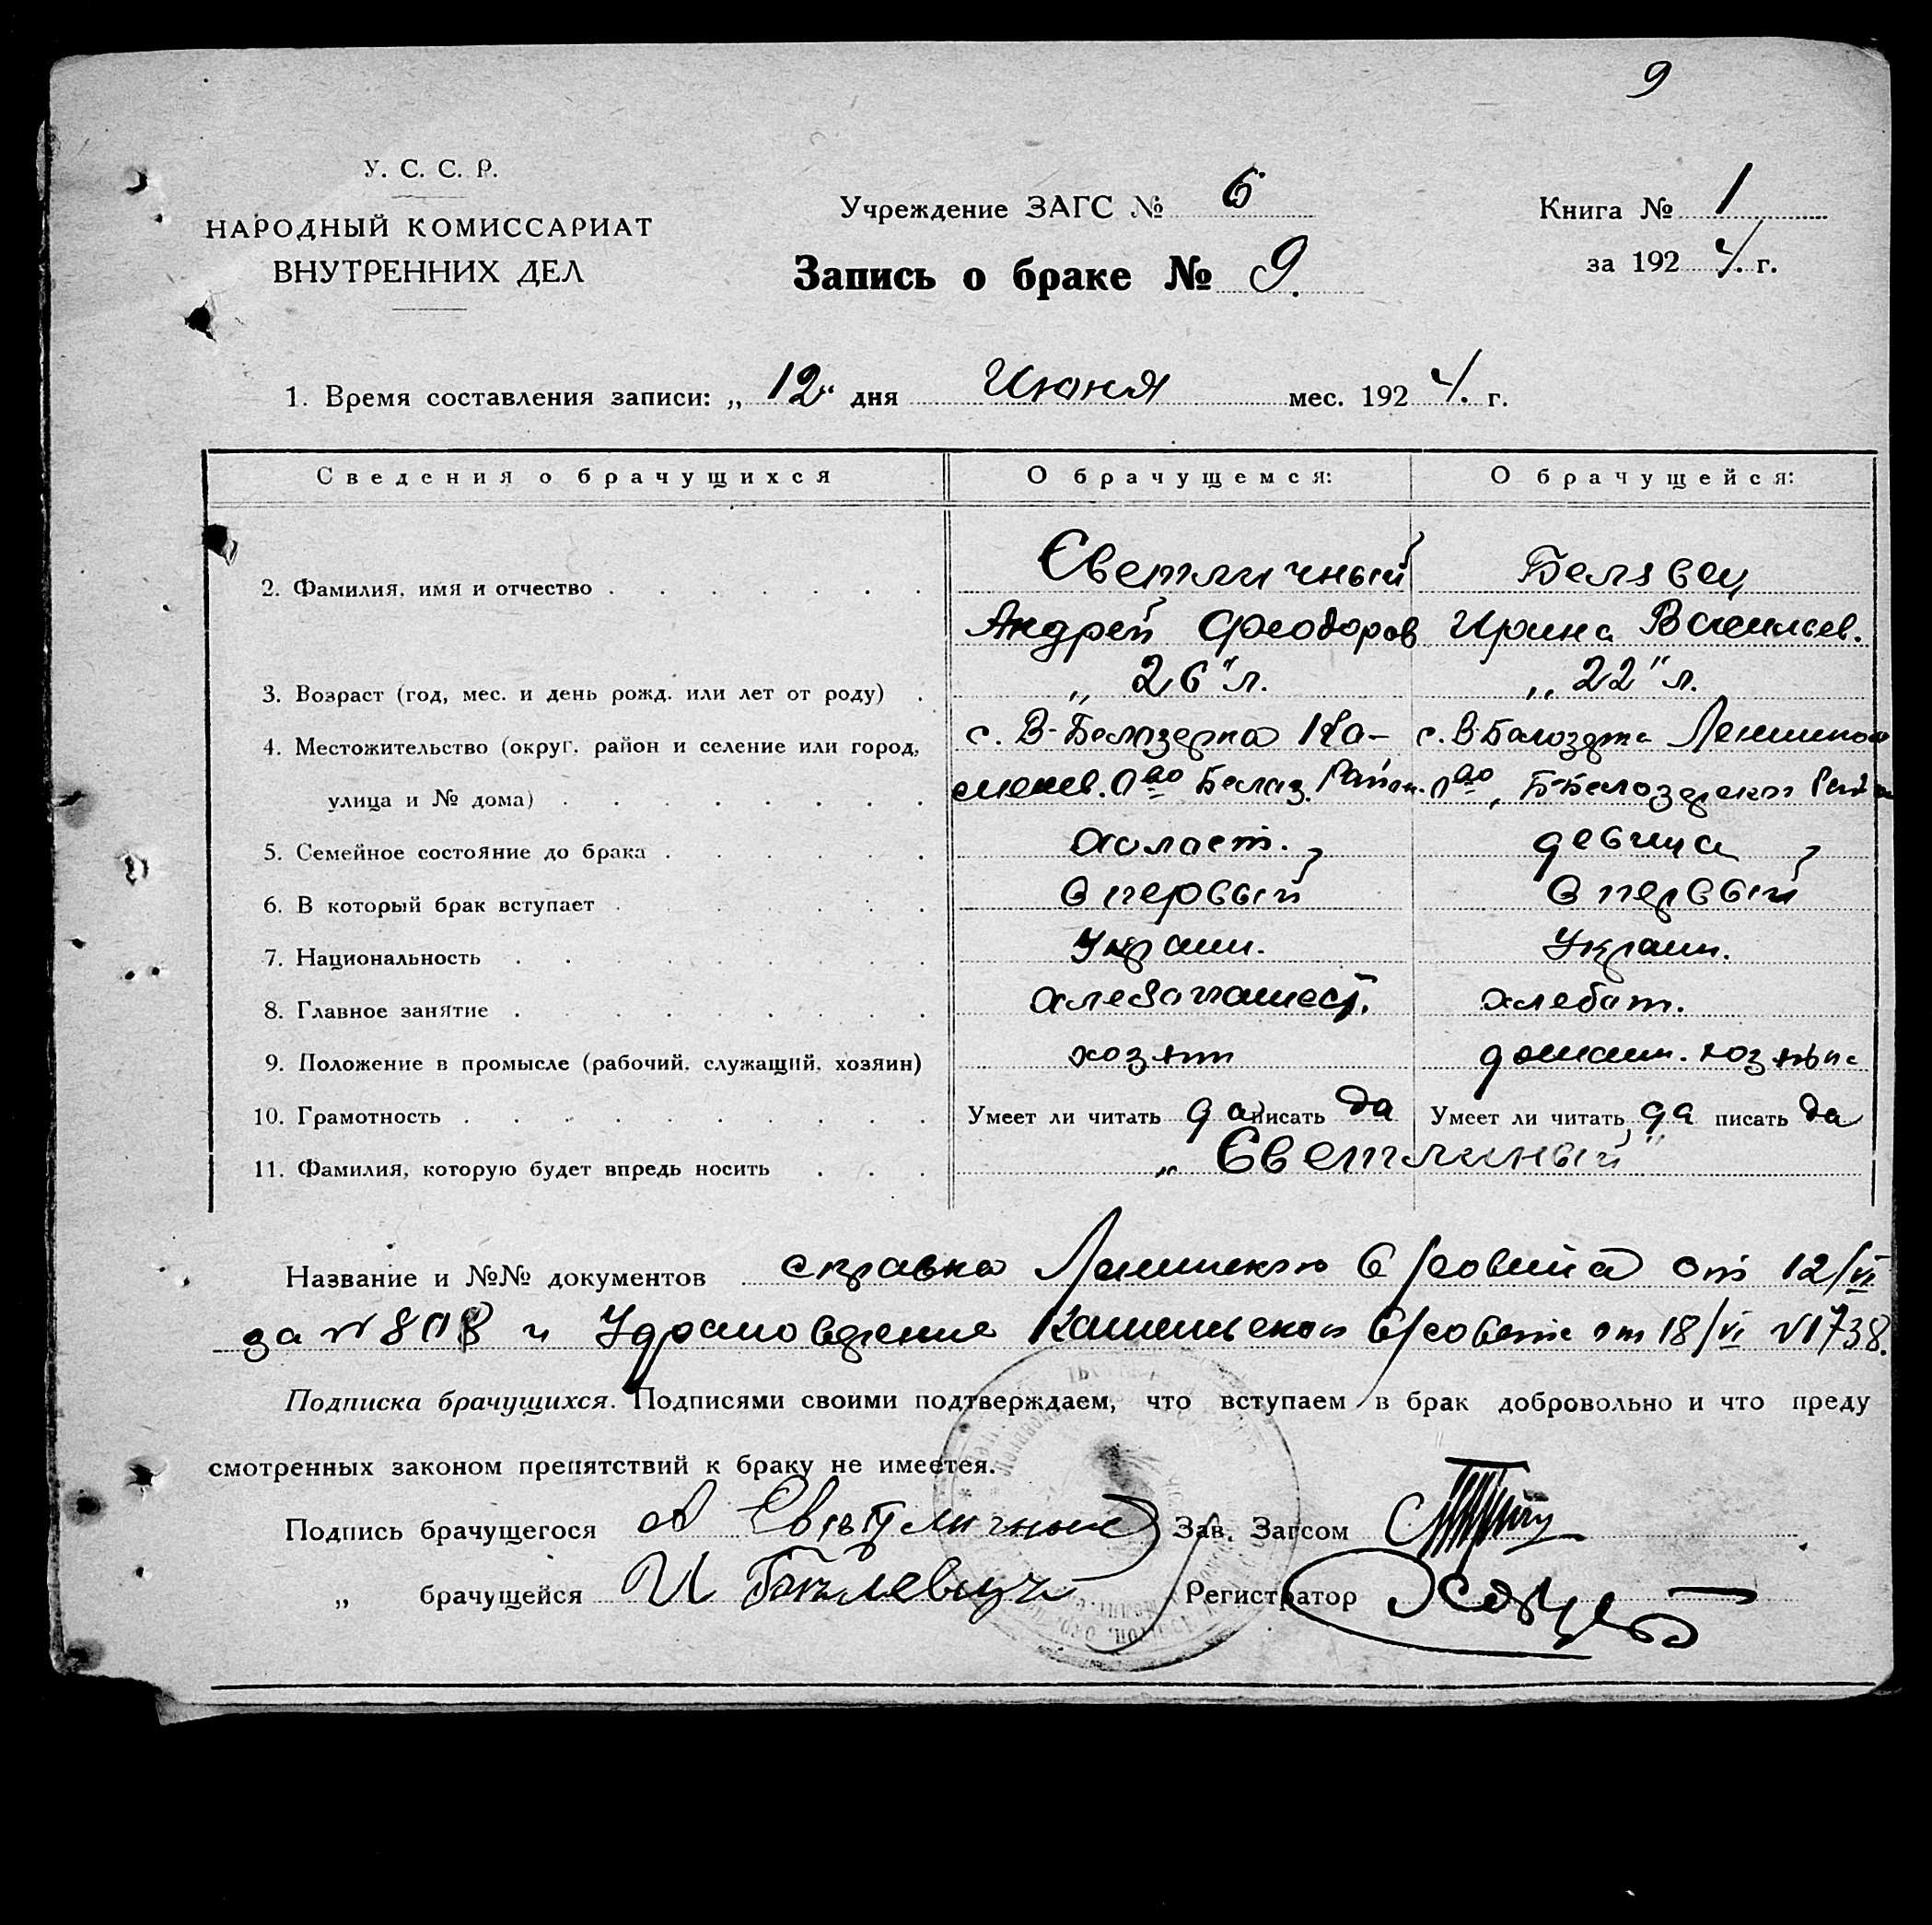 9
У. С. С. Р.
НАРОДНЫЙ КОМИССАРИАТ
ВНУТРЕННИХ ДЕЛ
Учреждение ЗАГС № 6
Книга № 1
Запись о браке № 9.
за 1924. г.
1. Время составления записи: „ 12 “ дня Июня мес. 1924. г.
Сведения о брачущихся О брачущемся: О брачущейся:
2. Фамилия, имя и отчество Светличный
Андрей Феодоров Ирина Васильев.
3. Возраст (год, мес. и день рожд. или лет от роду) „ 26 “ л. „ 22 “ л.
4. Местожительство (округ, район и селение или город, с. В-Белозерка с. В-Белозерка
улица и № дома)
5. Семейное состояние до брака холост. девица
6. В который брак вступает в первый в первый
7. Национальность Украин. Украин.
8. Главное занятие хлебопашест. хлебоп.
9. Положение в промысле (рабочий, служащий, хозяин) хозяин домашн. хозяйс
10. Грамотность Умеет ли читать да писать да Умеет ли читать да писать да
11. Фамилия, которую будет впредь носить „ Светличный “
Название и №№ документов справка от 12/VI
за № и от 18/VI №1738.
Подписка брачущихся. Подписями своими подтверждаем, что вступаем в брак добровольно и что преду
смотренных законом препятствий к браку не имеется.
Подпись брачущегося А Светличный Зав. Загсом
„ брачущейся И Регистратор